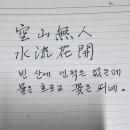 空山無人
水流花開
빈 산에 인적은 없는데
물은 흐르고 꽃은 피네.